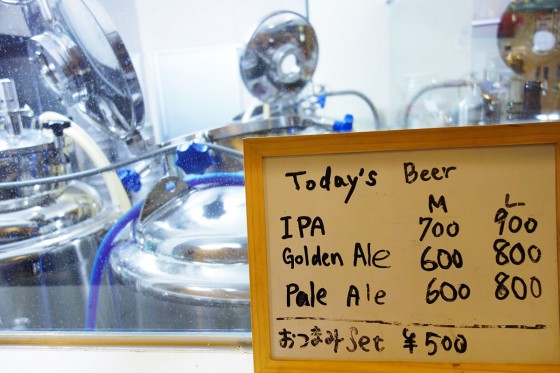 Today's Beer
M L
IPA 700 900
Golden Ale 600 800
Pale Ale 600 800
おつまみ Set ¥500